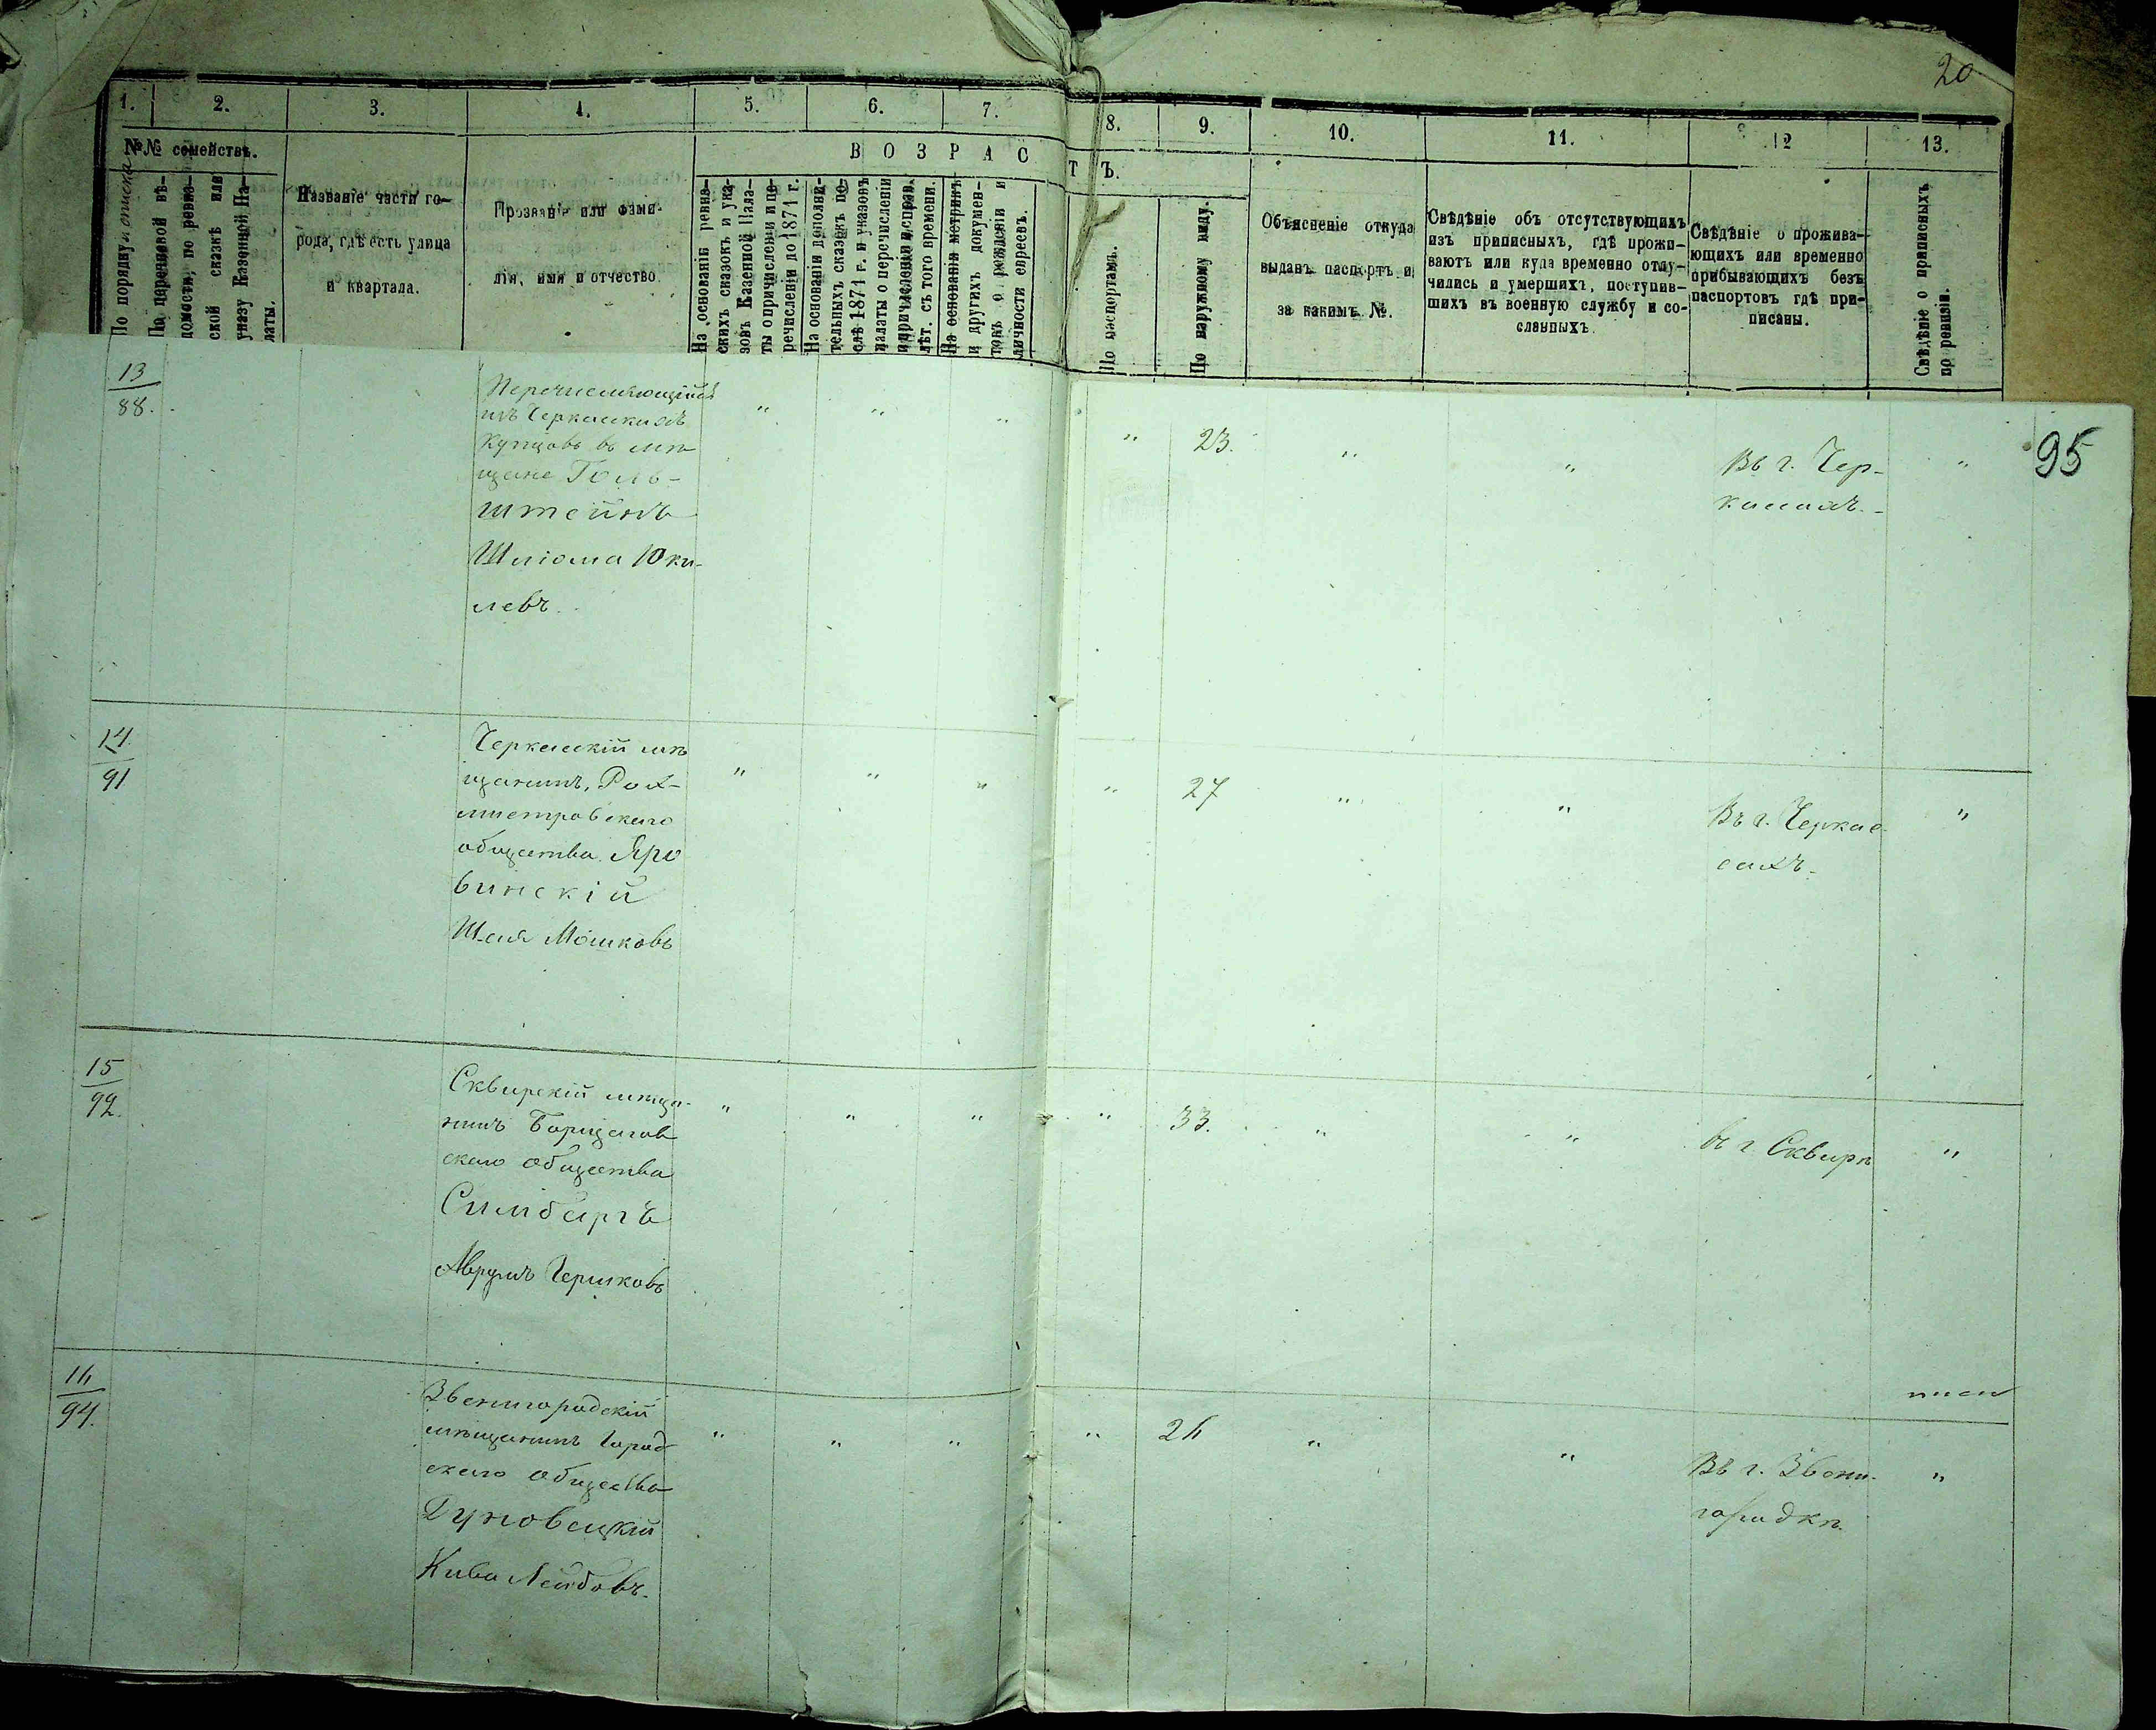 20
1. 2. 3. 4. 5. 6. 7. 8. 9. 10. 11. 12 13.
№№ семействъ.
По порядку
По перечневой вѣ-
домости, по ревиз-
ской сказкѣ или
указу Казенной Па-
латы.
Названіе части го-
рода, гдѣ есть улица
и квартала.
Прозваніе или фами-
лія, имя и отчество
ВОЗРАСТЪ.
На основаніи ревиз-
скихъ сказокъ и ука-
зовъ Казенной Пала-
ты о причисленіи и пе-
речисленіи до 1871 г.
На основаніи дополни-
тельныхъ сказокъ по-
слѣ 1871 г. и указовъ
палаты о перечисленіи
и причисленіи и справ.
лѣт. съ того времени.
На основаніи метрикъ
и другихъ докумен-
товъ о рожденіи и
личности евреевъ.
По паспортамъ.
По наружному виду.
Объясненіе откуда
выданъ паспортъ и
за какимъ №.
Свѣдѣніе объ отсутствующихъ
изъ приписныхъ, гдѣ прожи-
ваютъ или куда временно отлу-
чились и умершихъ, поступив-
шихъ въ военную службу и со-
сланныхъ.
Свѣдѣніе о прожива-
ющихъ или временно
прибывающихъ безъ
паспортовъ гдѣ при-
писаны.
Свѣдѣніе о приписныхъ
по ревизіи.
95
13
88.
Перечисляющійся
изъ Черкаскихъ
Купцовъ въ мѣ
щане Голь-
штейнъ
Шліома Юки-
левъ.
" " " " 23. " "
Въ г. Чер-
касахъ. "
14
91
Черкаскій мѣ
щанинъ, Рот-
мистровскаго
общества Яро
винскій
Шая Мошковъ
" " " " 27 " "
Въ г. Черкас
сахъ. "
15
92.
Сквирскій мѣща-
нинъ Борщагов
скаго общества
Симбергъ
Аврумъ Гершковъ
" " " " 33. " "
въ г Сквирѣ "
16
94.
Звенигородскій
мѣщанинъ Город
скаго общества
Дуновецкій
Кива Лейбовъ.
" " " " 26 " "
Въ г. Звени-
городкѣ. "